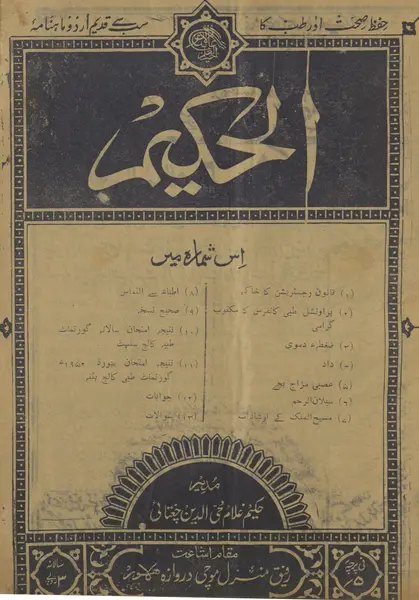 حفظ صحت اور طب کا
سب سے قدیم اردو ماہنامہ
الحکیم
اس شمارہ میں
(۱) قانون رجسٹریشن کا خاکہ
(۲) پراونشل طبی کانفرنس کا مکتوب گرامی
(۳) ضغطہ دموی
(۴) داد
(۵) عصبی مزاج بچے
(۶) سیلان الرحم
(۷) مسیح الملک کے ارشادات
(۸) اطباء سے التماس
(۹) صحیح نسخے
(۱۰) نتیجہ امتحان سالانہ گورنمنٹ طبیہ کالج
(۱۱) نتیجہ امتحان بورڈ گورنمنٹ طبی کالج پٹنہ
(۱۲) جوابات
(۱۳) سوالات
مدیر
حکیم غلام محی الدین چغتائی
مقام اشاعت
رفیق منزل موچی دروازہ لاہور
فی پرچہ ۵
سالانہ ۳